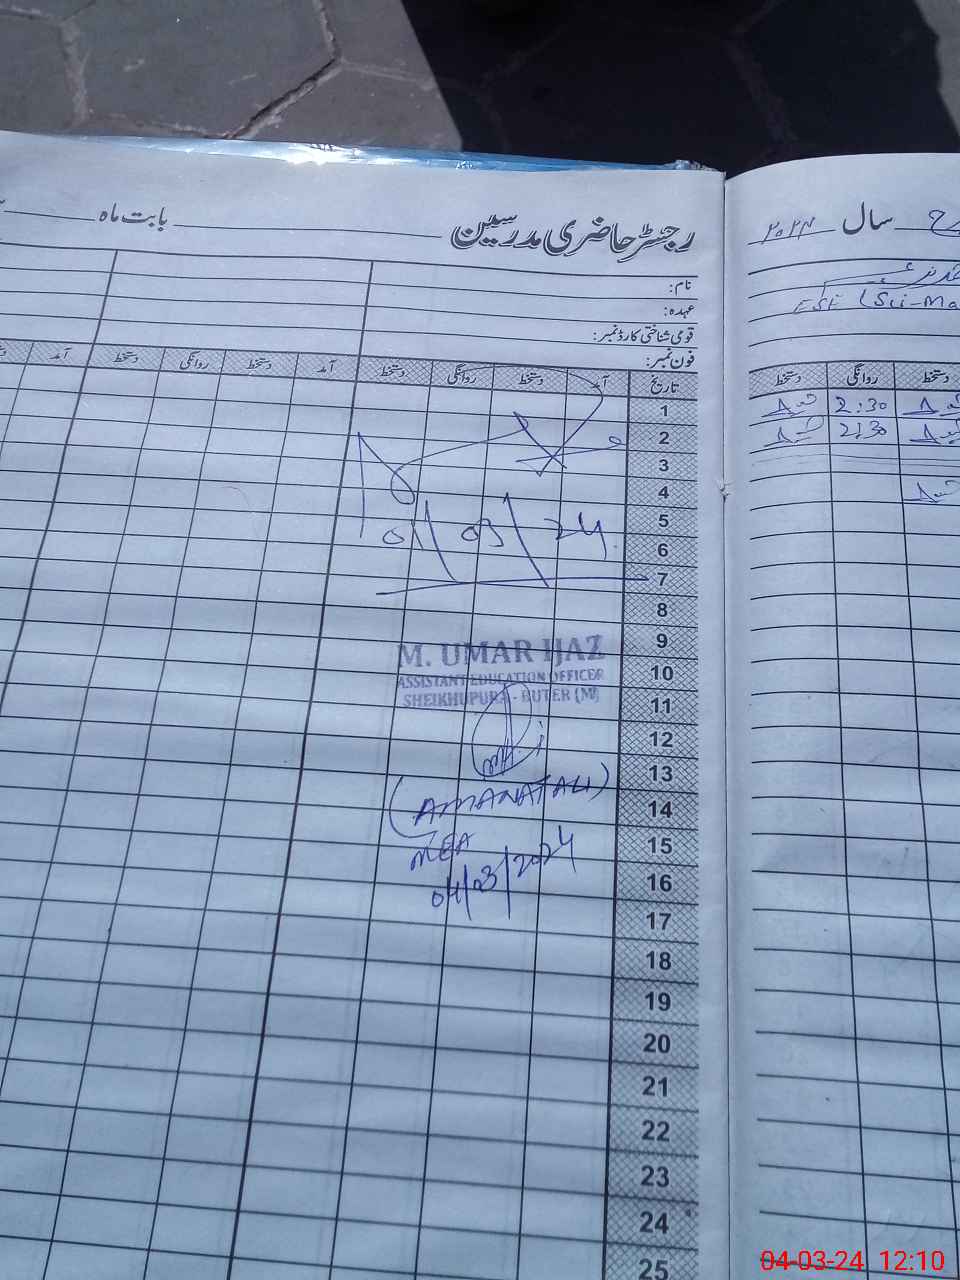 رجسٹر حاضری مدرسین بابت ماہ
سال ۲۰۲۴
نام:
عہدہ:
قومی شناختی کارڈ نمبر:
فون نمبر:
تاریخ آمد دستخط روانگی دستخط آمد دستخط روانگی دستخط آمد
1
2
3
4
5
6
7
8
9
10
11
12
13
14
15
16
17
18
19
20
21
22
23
24
25
/03/24
M. UMAR IJAZ
ASSISTANT EDUCATION OFFICER
SHEIKHUPURA - BUTER (M)
(AMANAT ALI)
MEA
04/03/2024
ESE (Sci-Ma
دستخط روانگی دستخط
2:30
2:30
04-03-24 12:10